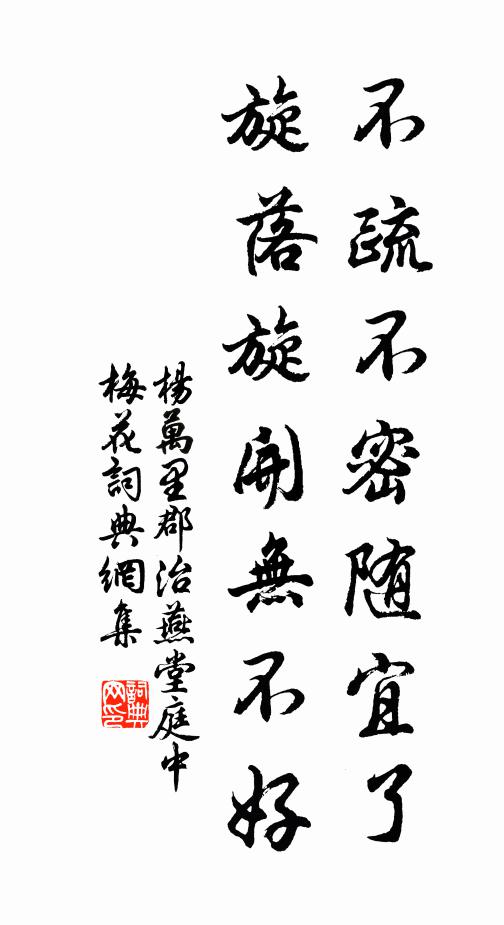 不疏不密随宜了
旋落旋開無不好
楊萬里郡治燕堂庭中
梅花詞典網集
詞典
网印